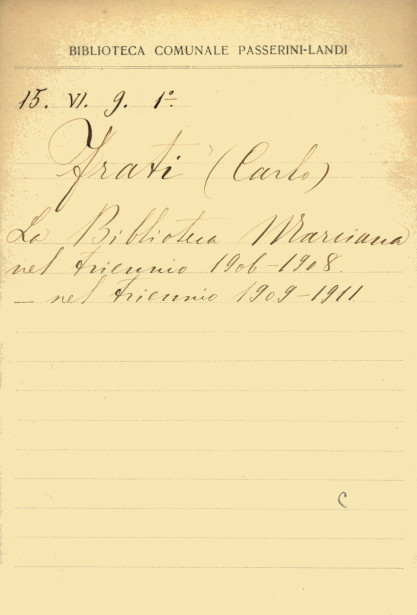 BIBLIOTECA COMUNALE PASSERINI-LANDI
15. VI. 9. 1º.
Frati (Carlo)
La Biblioteca Marciana
nel triennio 1906-1908.
— nel triennio 1909-1911
C